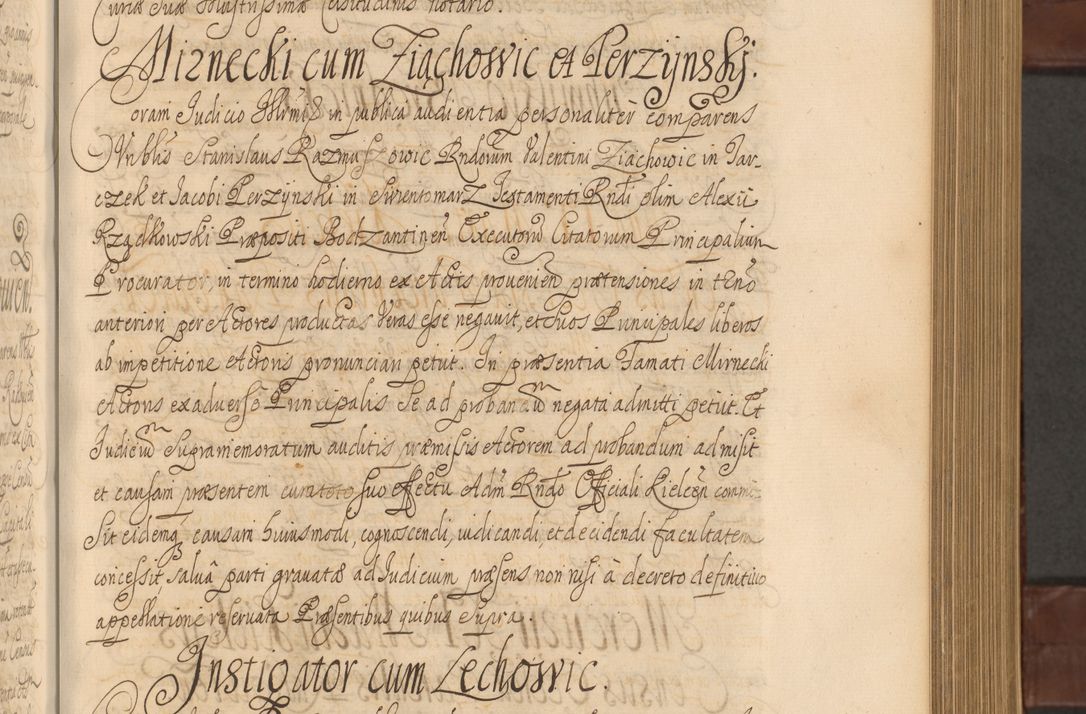 Curiæ Suæ Illustrissimæ Causarum notario.
Mirnecki cum Ziąchowic et Perzijnskij.
Coram Judicio Illrmi&D in publica audientia personaliter comparens
Vnblis Stanislaus Razmuszowic Rndorum Valentini Ziąchowic in Tar-
czek et Jacobi Perzijnski in Swientomarz Testamenti Rndi olim Alexii
Rządkowski Præpositi Bodzantinen Executorū Citatorum Principalium
Procurator, in termino hodierno ex Actis provenien prætensiones in tenō
anteriori per Actores productas Veras esse negavit, et suos Principales liberos
ab impetitione Actoris pronunciari petiit. In præsentia Famati Mirnecki
Actoris ex adversō Principalis Se ad probandū negata admitti petiit. Et
Judiciū Supramemoratum auditis præmissis Actorem ad probandum admisit
et causam præsentem cum toto suo effectu Adm Rndo Officiali Kielcēn commi-
sit eidemq causam huiusmodi, cognoscendi, iudicandi, et decidendi facultatem
concessit salvâ parti gravatæ ad Iudicium præsens non nisi à decreto definitivo
appellatione reservata Præsentibus quibus Supra.
Instigator cum Lechowic.